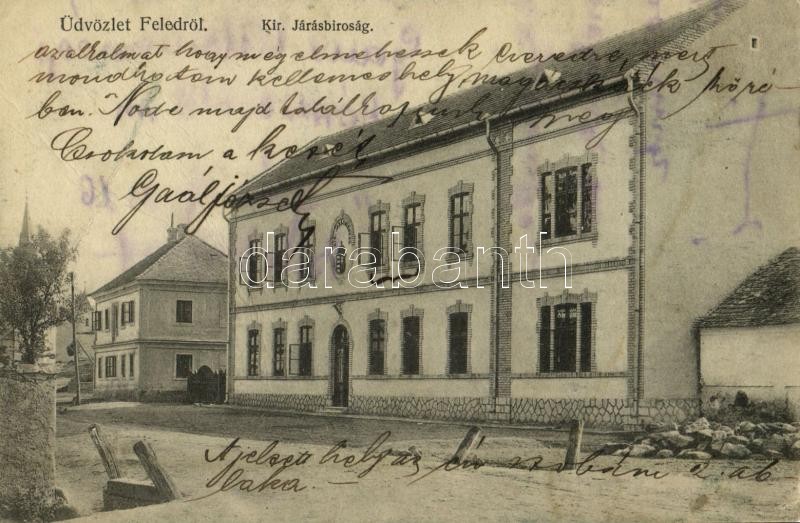 Üdvözlet Feledről.
Kir. Járásbiroság.
az alkalmat hogy meg elmehessek Cseredre, mert
mondhatom kellemes hely magácskáék köré-
ben. Node majd találkozunk még
Csokolom a kezét
Gaál József
darabanth
A jelzett hely az én szobám 2 ab-
laka.